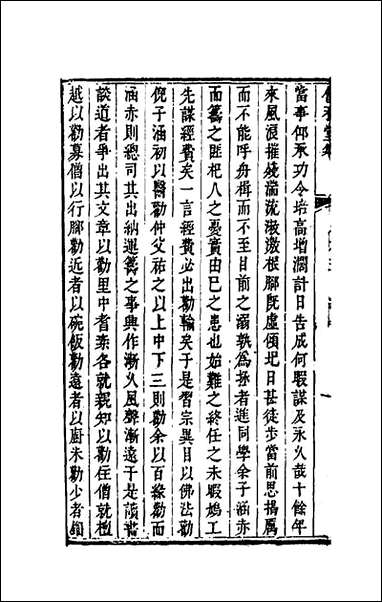 當事仰承功令培高增濶計日告成何暇謀及永久哉十餘年
來風浪摧燒湍流激根腳旣虛傾圯日甚徒步當前思揭厲
而不能呼舟楫而不至目前之溺孰為拯者進同學余子涵亦
而籌之匪杞人之憂實由己之患也始難之終任之未暇鳩工
先謀經費矣一言經費必出勸輸矣于是習宗異目以佛法勸
倪子涵初以醫勸仲父祐之以上中下三則勸余以百緣勸而
涵亦則總司其出納運籌之事興作漸久風聲漸遠于是讀書
談道者爭出其文章以勸里中耆耋各就親知以勸住僧就檀
越以勸募僧以行腳勸近者以碗飯勸遠者以廚米勸少者